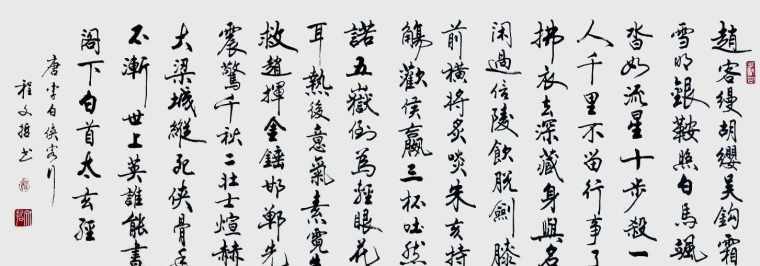 趙客縵胡纓吳鈎霜
雪明銀鞍照白馬颯
沓如流星十步殺一
人千里不留行事了
拂衣去深藏身與名
閑過信陵飲脫劍膝
前橫將炙啖朱亥持
觴勸侯嬴三杯吐然
諾五嶽倒為輕眼花
耳熱後意氣素霓生
救趙揮金錘邯鄲先
震驚千秋二壯士煊赫
大梁城縱死俠骨香
不慚世上英誰能書
閣下白首太玄經
唐李白俠客行
程文书